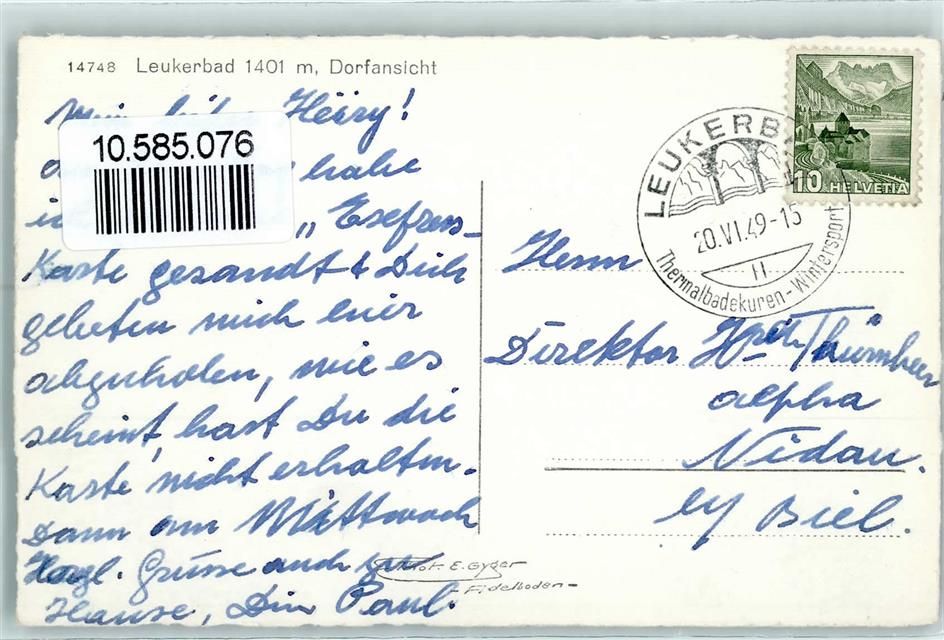 14748 Leukerbad 1401 m, Dorfansicht
Mein lieber Héiry!
10.585.076
habe
Karte gesandt & Dich
gebeten mich hier
abzuholen, wie es
scheint, hast Du die
Karte nicht erhalten.
Dann am Mittwoch
Herzl. Grüsse auch zu
Hause, Dein Paul.
LEUKERB
20.VI.49-15
11
Thermalbadekuren-Wintersport
10 HELVETIA
Herrn
Direktor Hptm Thürnheer
alpha
Nidau.
b/ Biel.
Phot. E. Gyger
Adelboden